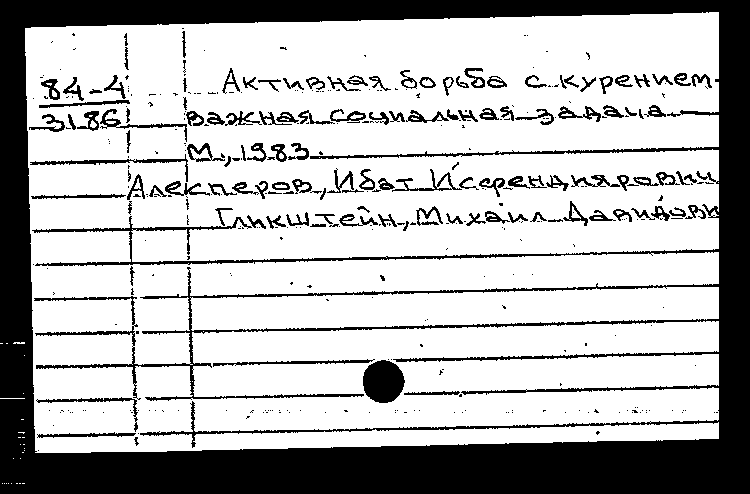 84-4
3186
Активная борьба с курением-
важная социальная задача.—
М., 1983.
Алесперов, Ибат Исфендиярович
Гликштейн, Михаил Давидови